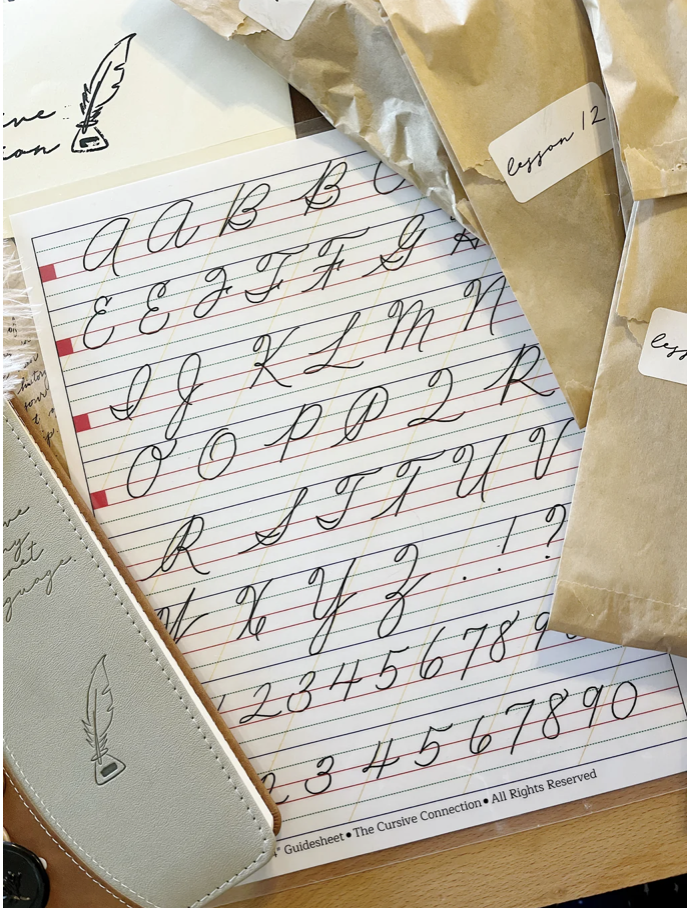 lesson 12
A A B B C
E E F F G
I J K L M N
O O P P Q R
R S T T U V
W X Y Z . ! ?
2 3 4 5 6 7 8 9
2 3 4 5 6 7 8 9 0
Guidesheet • The Cursive Connection • All Rights Reserved